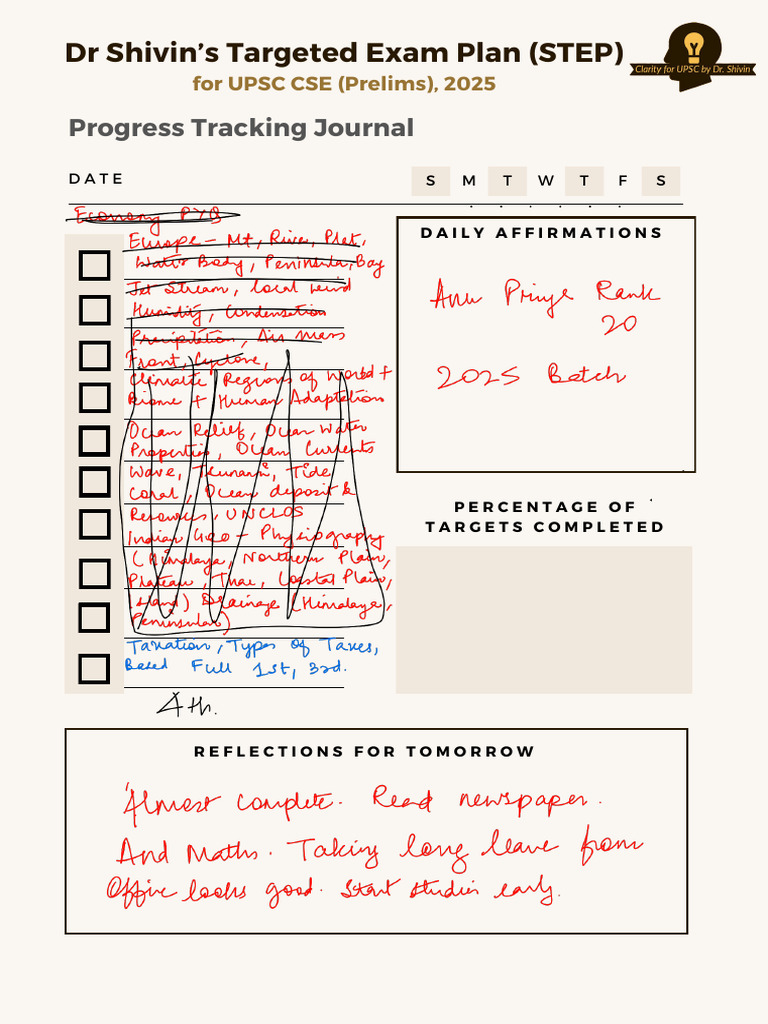 Dr Shivin's Targeted Exam Plan (STEP)
for UPSC CSE (Prelims), 2025
Clarity for UPSC by Dr. Shivin
Progress Tracking Journal
DATE
S M T W T F S
Economy PYQ
Europe - Mt, River, Plat,
Water Body, Peninsula, Bay
Jet Stream, local wind
Humidity, Condensation
Precipitation, Air Mass
Front, Cyclone,
Climatic Regions of World +
Biome + Human Adaptation
Ocean Relief, Ocean Water
Properties, Ocean Currents
Wave, Tsunami, Tide
Coral, Ocean deposit &
Resources, UNCLOS
Indian Geo - Physiography
(Himalaya, Northern Plain,
Plateau, Thar, Coastal Plain,
Island) Drainage (Himalaya,
Peninsular)
Taxation, Types of Taxes,
Based Full 1st, 3rd.
4th.
DAILY AFFIRMATIONS
Anu Priya Rank
20
2025 Batch
PERCENTAGE OF
TARGETS COMPLETED
REFLECTIONS FOR TOMORROW
Almost complete. Read newspaper.
And Maths. Taking long leave from
Office looks good. Start studies early.